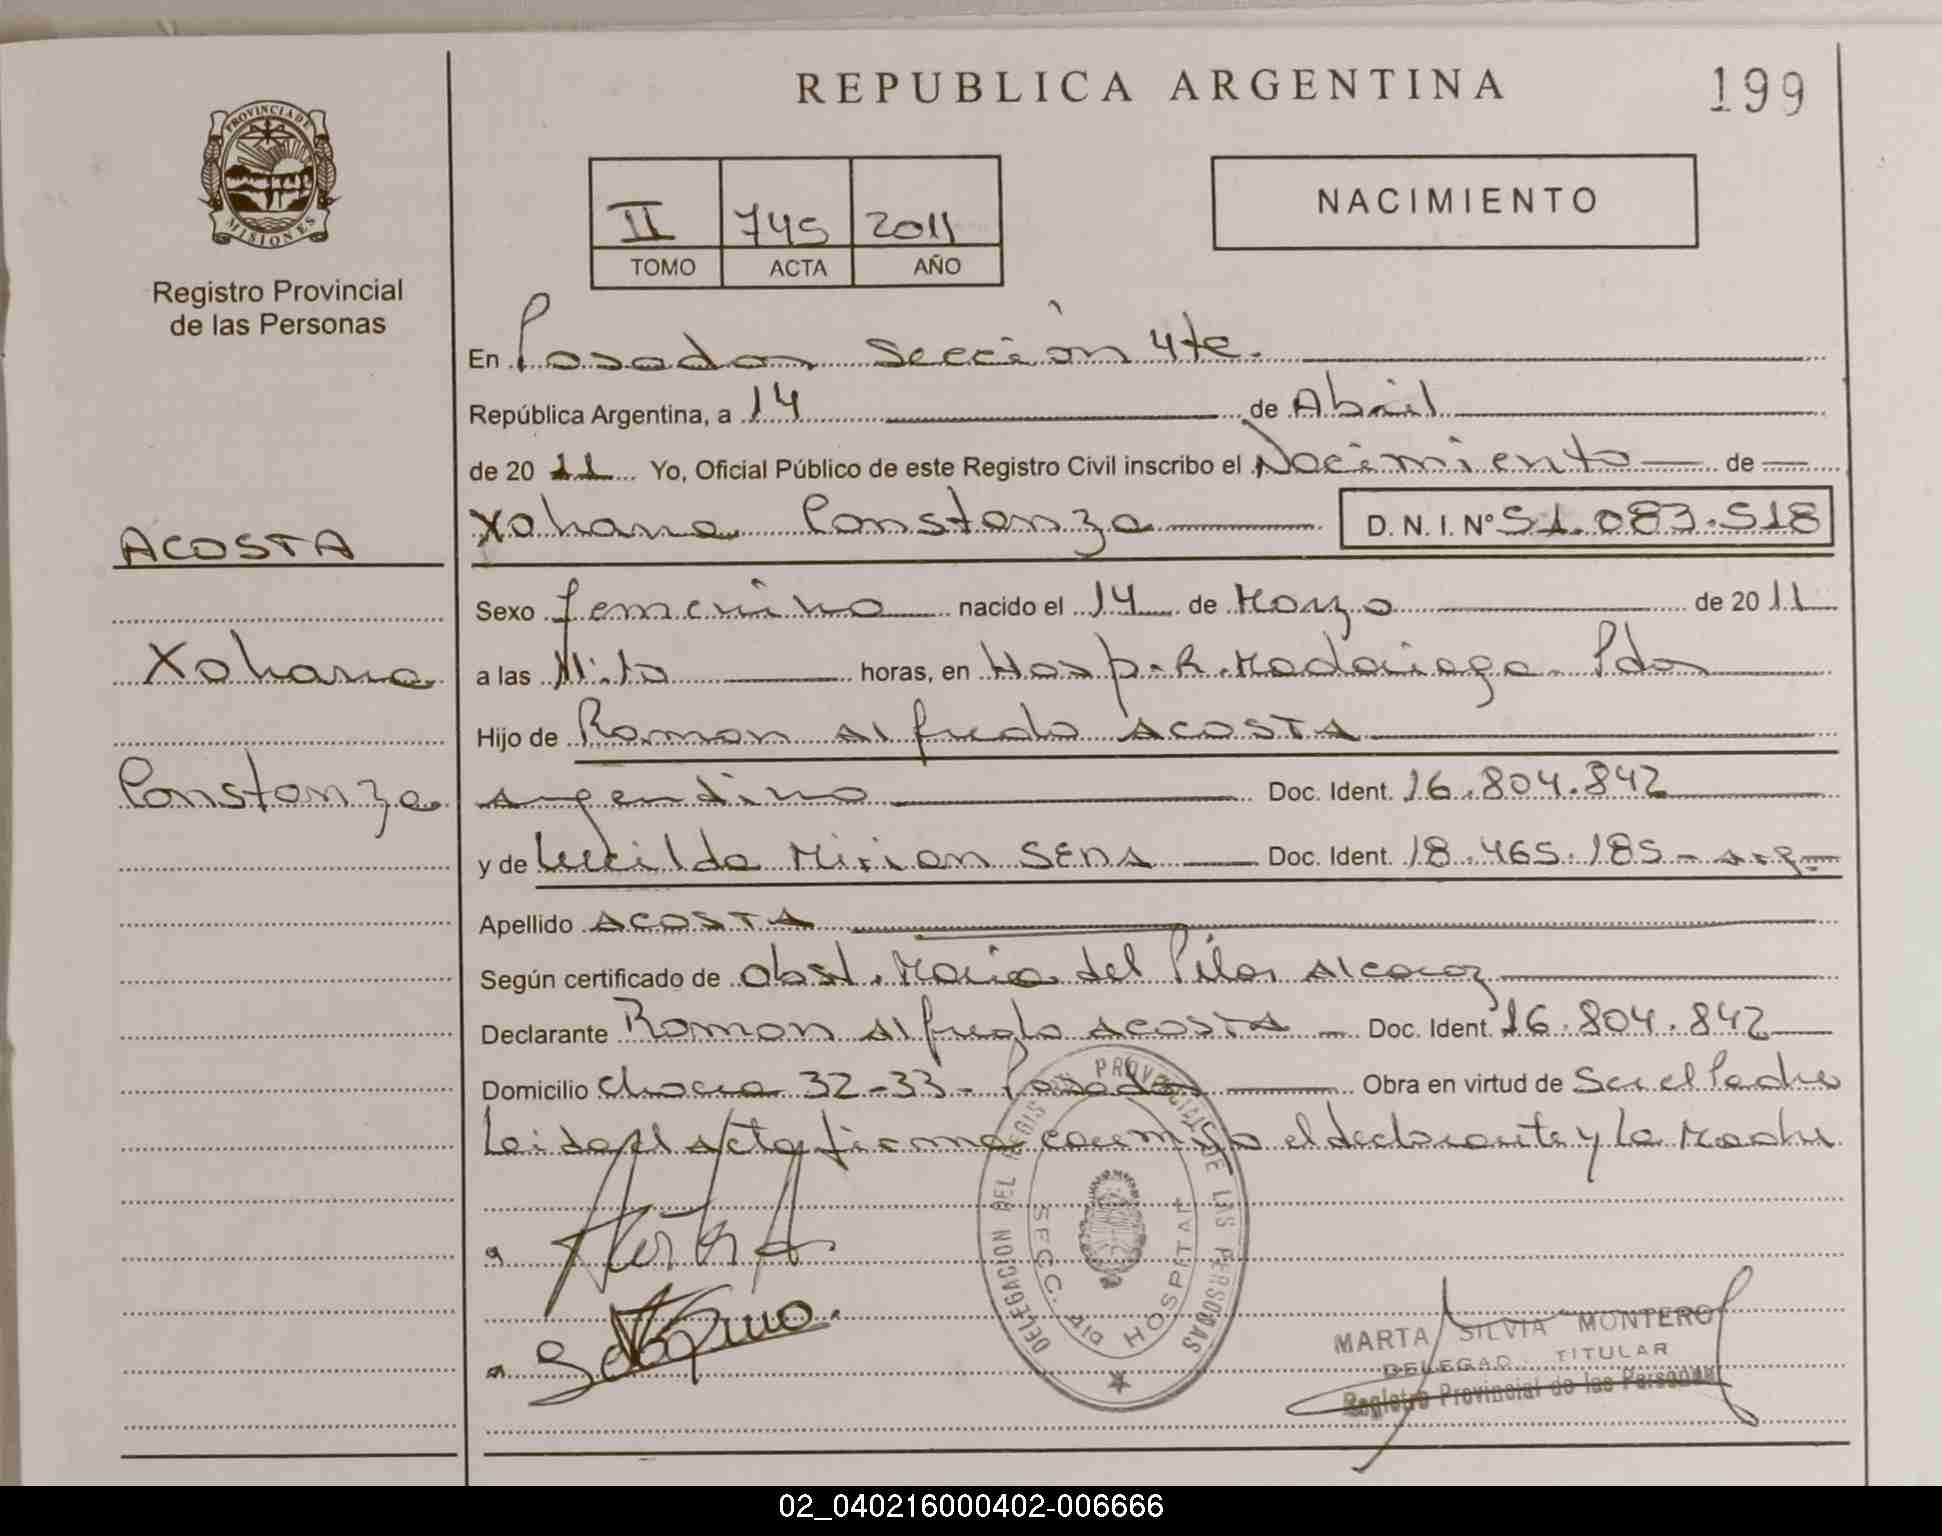 REPUBLICA ARGENTINA
199
PROVINCIA DE
MISIONES
Registro Provincial
de las Personas
II 745 2011
TOMO ACTA AÑO
NACIMIENTO
En Posadas Sección 4ta.
República Argentina, a 14 de Abril
de 2011 Yo, Oficial Público de este Registro Civil inscribo el Nacimiento de
Xohana Constanza D. N. I. Nº 51.083.518
ACOSTA
Xohana
Constanza
Sexo femenino nacido el 14 de Marzo de 2011
a las 11:10 horas, en Hosp. R. Madariaga. Pdas
Hijo de Ramon Alfredo ACOSTA
argentino Doc. Ident. 16.804.842
y de Mirian SENA Doc. Ident. 18.465.185 - arg.
Apellido ACOSTA
Según certificado de Obst. Maria del Pilar Alcaraz
Declarante Ramon Alfredo ACOSTA Doc. Ident. 16.804.842
Domicilio Chacra 32-33 - Posadas Obra en virtud de Ser el Padre
Leida el Acta firma conmigo el declarante y la Madre
DELEGACION DEL REGISTRO PROVINCIAL DE LAS PERSONAS
SECC. HOSPITAL
MARTA SILVIA MONTERO
DELEGAD TITULAR
Registro Provincial de las Personas
02_040216000402-006666